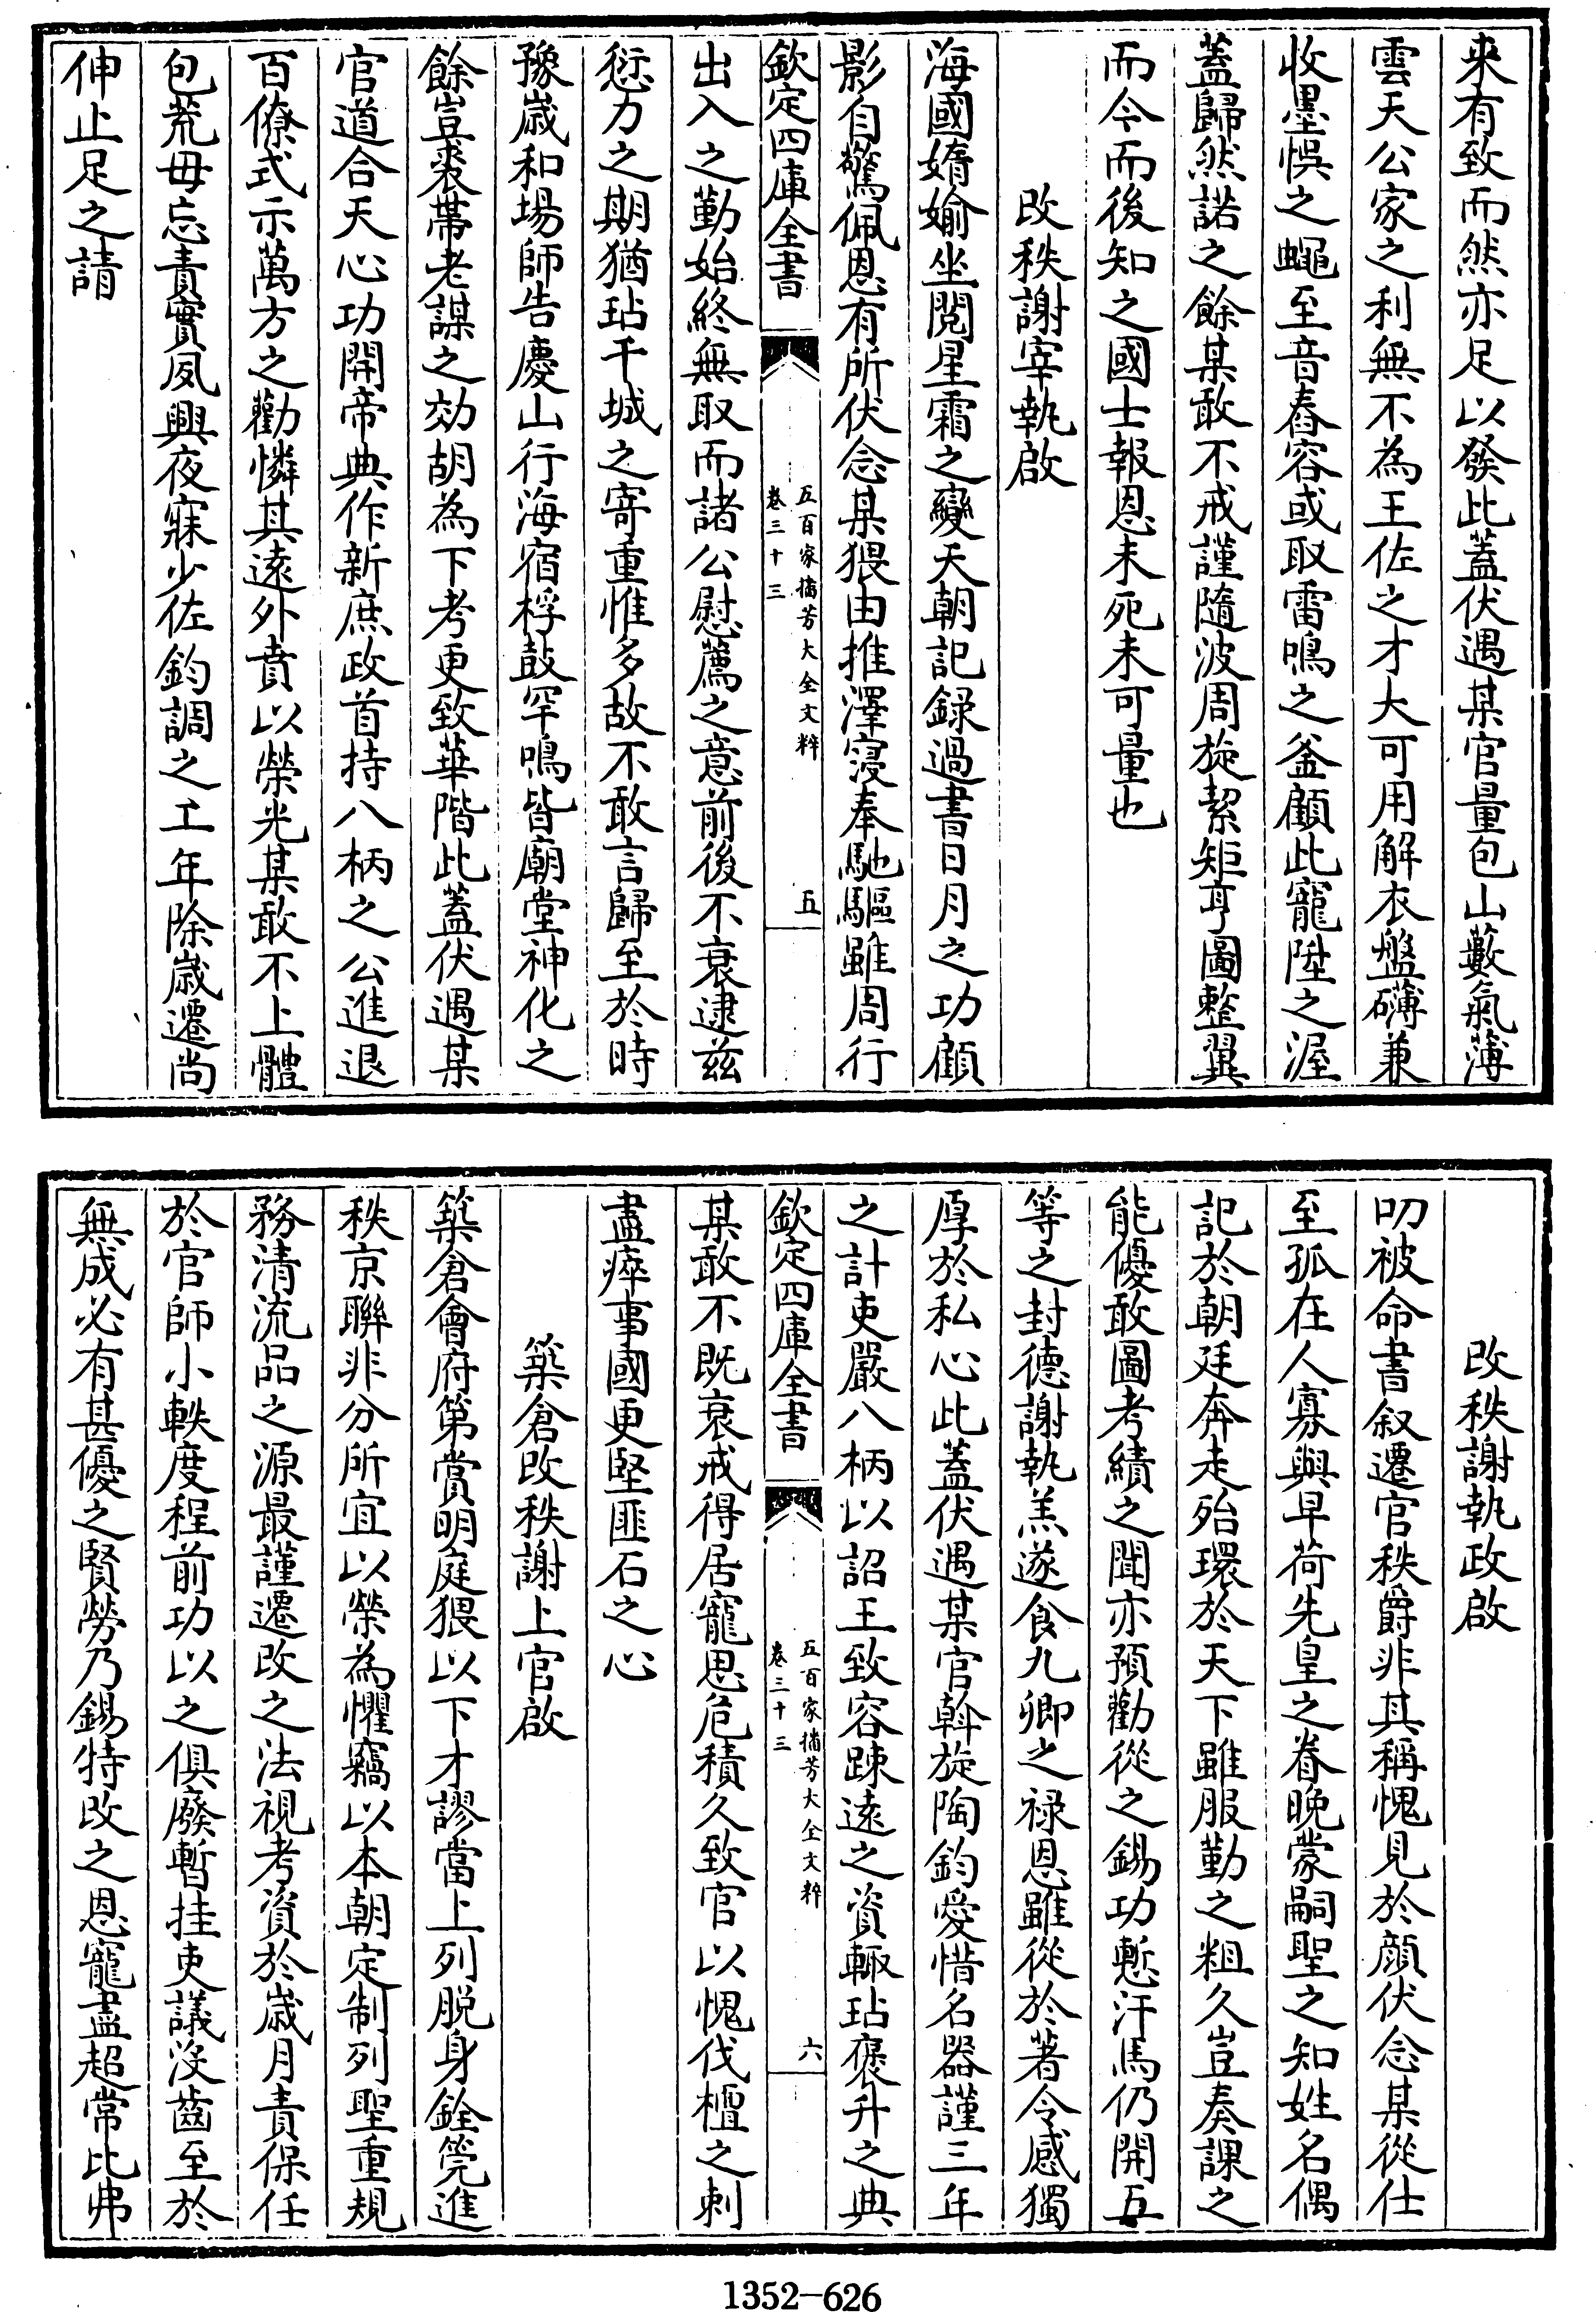 来有致而然亦足以發此蓋伏遇某官量包山藪氣薄
雲天公家之利無不為王佐之才大可用解衣盤礴兼
收墨悞之蠅至音舂容或取雷鳴之釜顧此寵陞之渥
蓋歸然諾之餘某敢不戒謹隨波周旋絜矩亨圖整翼
而今而後知之國士報恩未死未可量也
改秩謝宰執啟
海國婿媮坐閱星霜之變天朝記録過書日月之功顧
影自驚佩恩有所伏念某猥由推澤寖奉馳驅雖周行
欽定四庫全書
五百家播芳大全文粹
卷三十三
五
出入之勤始終無取而諸公慰薦之意前後不衰逮兹
愆力之期猶玷千城之寄重惟多故不敢言歸至於時
豫歳和場師告慶山行海宿桴鼓罕鳴皆廟堂神化之
餘豈裘帶老謀之効胡為下考更致華階此蓋伏遇某
官道合天心功開帝典作新庶政首持八柄之公進退
百僚式示萬方之勸憐其遠外賁以榮光某敢不上體
包荒毋忘責實夙興夜寐少佐鈞調之工年除歲遷尚
伸止足之請
改秩謝執政啟
叨被命書叙遷官秩爵非其稱愧見於顔伏念某從仕
至孤在人寡與早荷先皇之眷晚蒙嗣聖之知姓名偶
記於朝廷奔走殆環於天下雖服勤之粗久豈奏課之
能優敢圖考績之聞亦預勸從之錫功慙汗馬仍開五
等之封德謝執羔遂食九卿之禄恩雖從於著令感獨
厚於私心此蓋伏遇某官斡旋陶鈞愛惜名器謹三年
之計吏嚴八柄以詔王致容疎遠之資輙玷褒升之典
欽定四庫全書
五百家播芳大全文粹
卷三十三
六
某敢不既衰戒得居寵思危積久致官以愧伐檀之刺
盡瘁事國更堅匪石之心
築倉改秩謝上官啟
築倉會府第賞明庭猥以下才謬當上列脱身銓筦進
秩京聯非分所宜以榮為懼竊以本朝定制列聖重規
務清流品之源最謹遷改之法視考資於歲月責保任
於官師小軼度程前功以之俱廢暫挂吏議沒齒至於
無成必有甚優之賢勞乃錫特改之恩寵盡超常比弗
1352-626